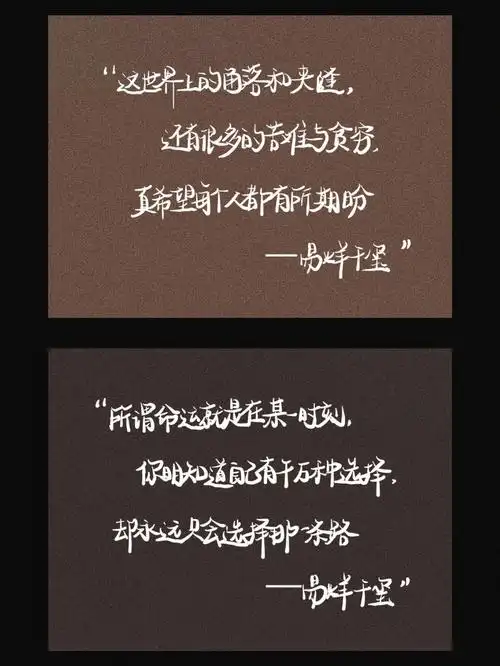 “这世界上的角落和夹缝，
还有很多的苦难与贫穷，
真希望每个人都有所期盼
——易烊千玺”
“所谓命运就是在某一时刻，
你明知道自己有千万种选择，
却永远只会选择那一条路
——易烊千玺”